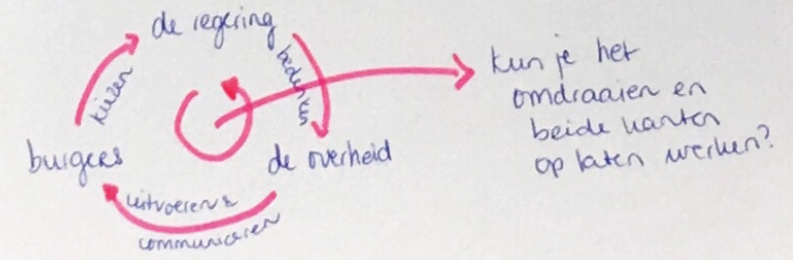 de regering
bedenken
kiezen
burgers
de overheid
uitvoeren &
communiceren
kun je het
omdraaien en
beide kanten
op laten werken?